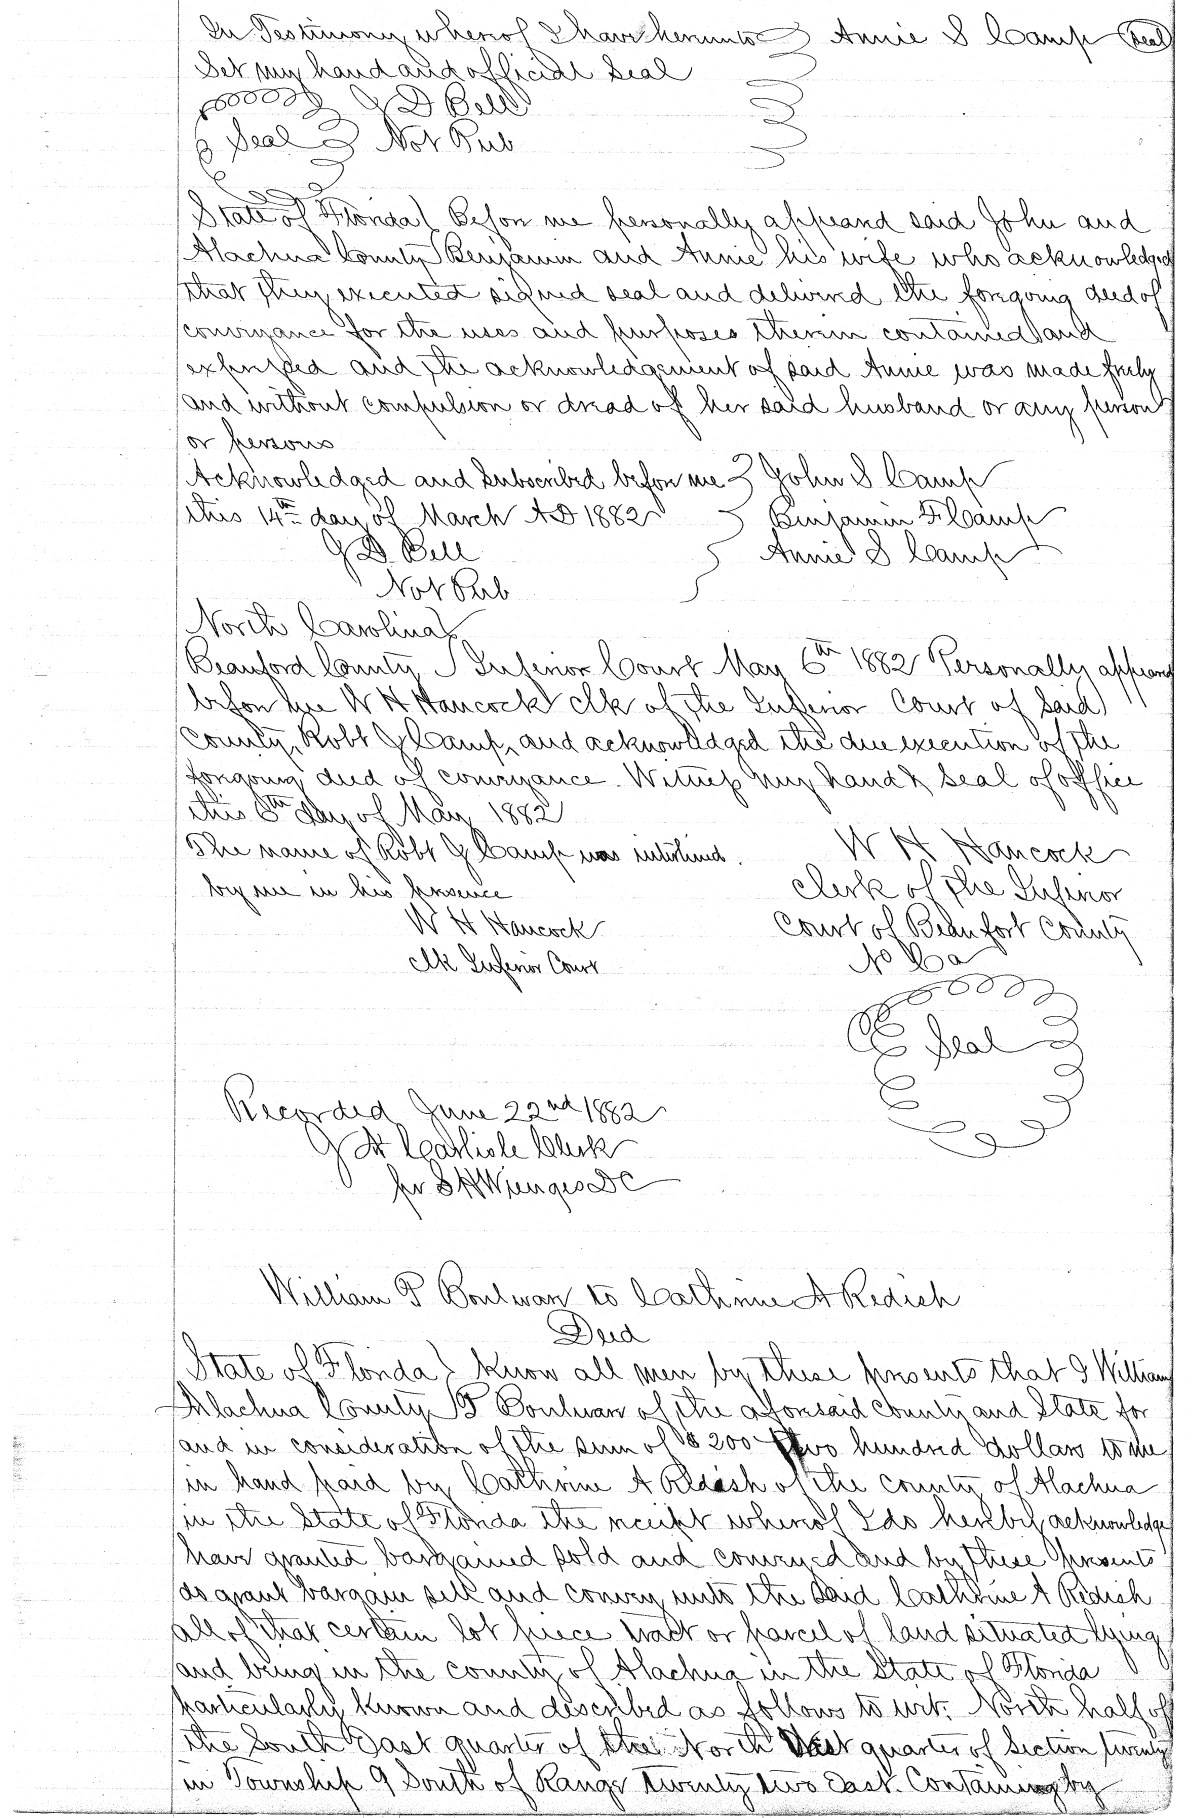 In Testimony whereof I have hereunto Annie S Camp (Seal)
Set my hand and official Seal
J D Bell
Seal Not Pub
State of Florida Before me personally appeard said John and
Alachua County Benjamin and Annie his wife who acknowledged
that they executed signed seal and delivered the foregoing deed of
conveyance for the uses and purposes therein contained and
expressed and the acknowledgement of said Annie was made freely
and without compulsion or dread of her said husband or any person
or persons
Acknowledged and Subscribed before me John S Camp
this 14th day of March AD 1882 Benjamin F Camp
J D Bell Annie S Camp
Not Pub
North Carolina
Beauford County Inferior Court May 6th 1882 Personally appeared
before me W H Hancock clk of the Inferior Court of Said
County, Robt G Camp, and acknowledged the due execution of the
forgoing deed of conveyance. Witness my hand & Seal of office
this 6th day of May 1882
The name of Robt G Camp was interlined. W H Hancock
by me in his presence Clerk of the Inferior
W H Hancock Court of Beaufort County
clk Inferior Court No Ca
Seal
Recorded June 22nd 1882
J A Carlisle Clerk
pr S H Wienges DC
William P Boulwar to Cathrine A Redish
Deed
State of Florida Know all men by these presents that I William
Alachua County P Boulwar of the aforesaid County and State for
and in consideration of the sum of $200 Two hundred dollars to me
in hand paid by Cathrine A Redish of the County of Alachua
in the State of Florida the receipt whereof I do hereby acknowledge
have granted bargained sold and conveyed and by these presents
do grant bargain sell and convey unto the Said Cathrine A Redish
all of that certain lot piece tract or parcel of land situated lying
and being in the county of Alachua in the State of Florida
particularly known and described as follows to wit: North half of
the South East quarter of the North quarter of Section twenty
in Township 9 South of Range twenty two East. Containing by